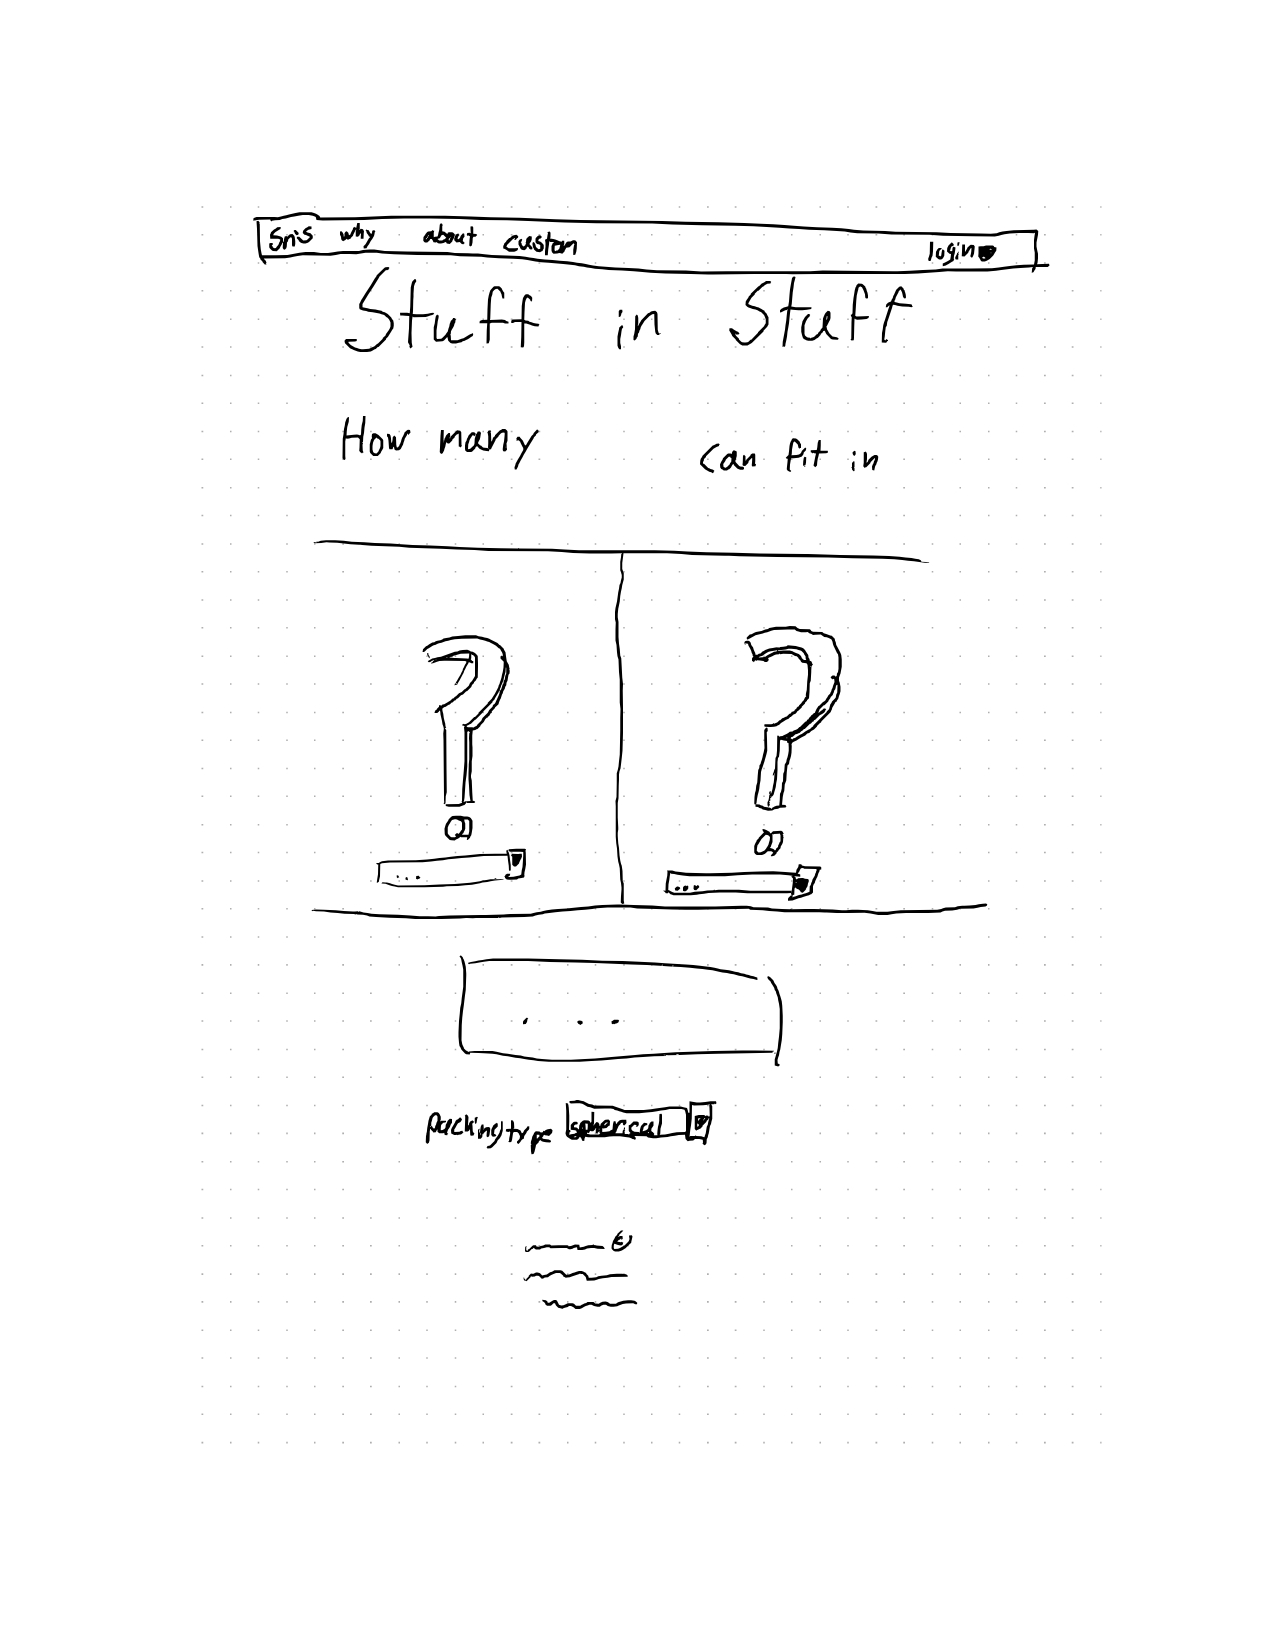 SniS why about custom login
Stuff in Stuff
How many can fit in
?
?
...
...
...
packing type spherical
©